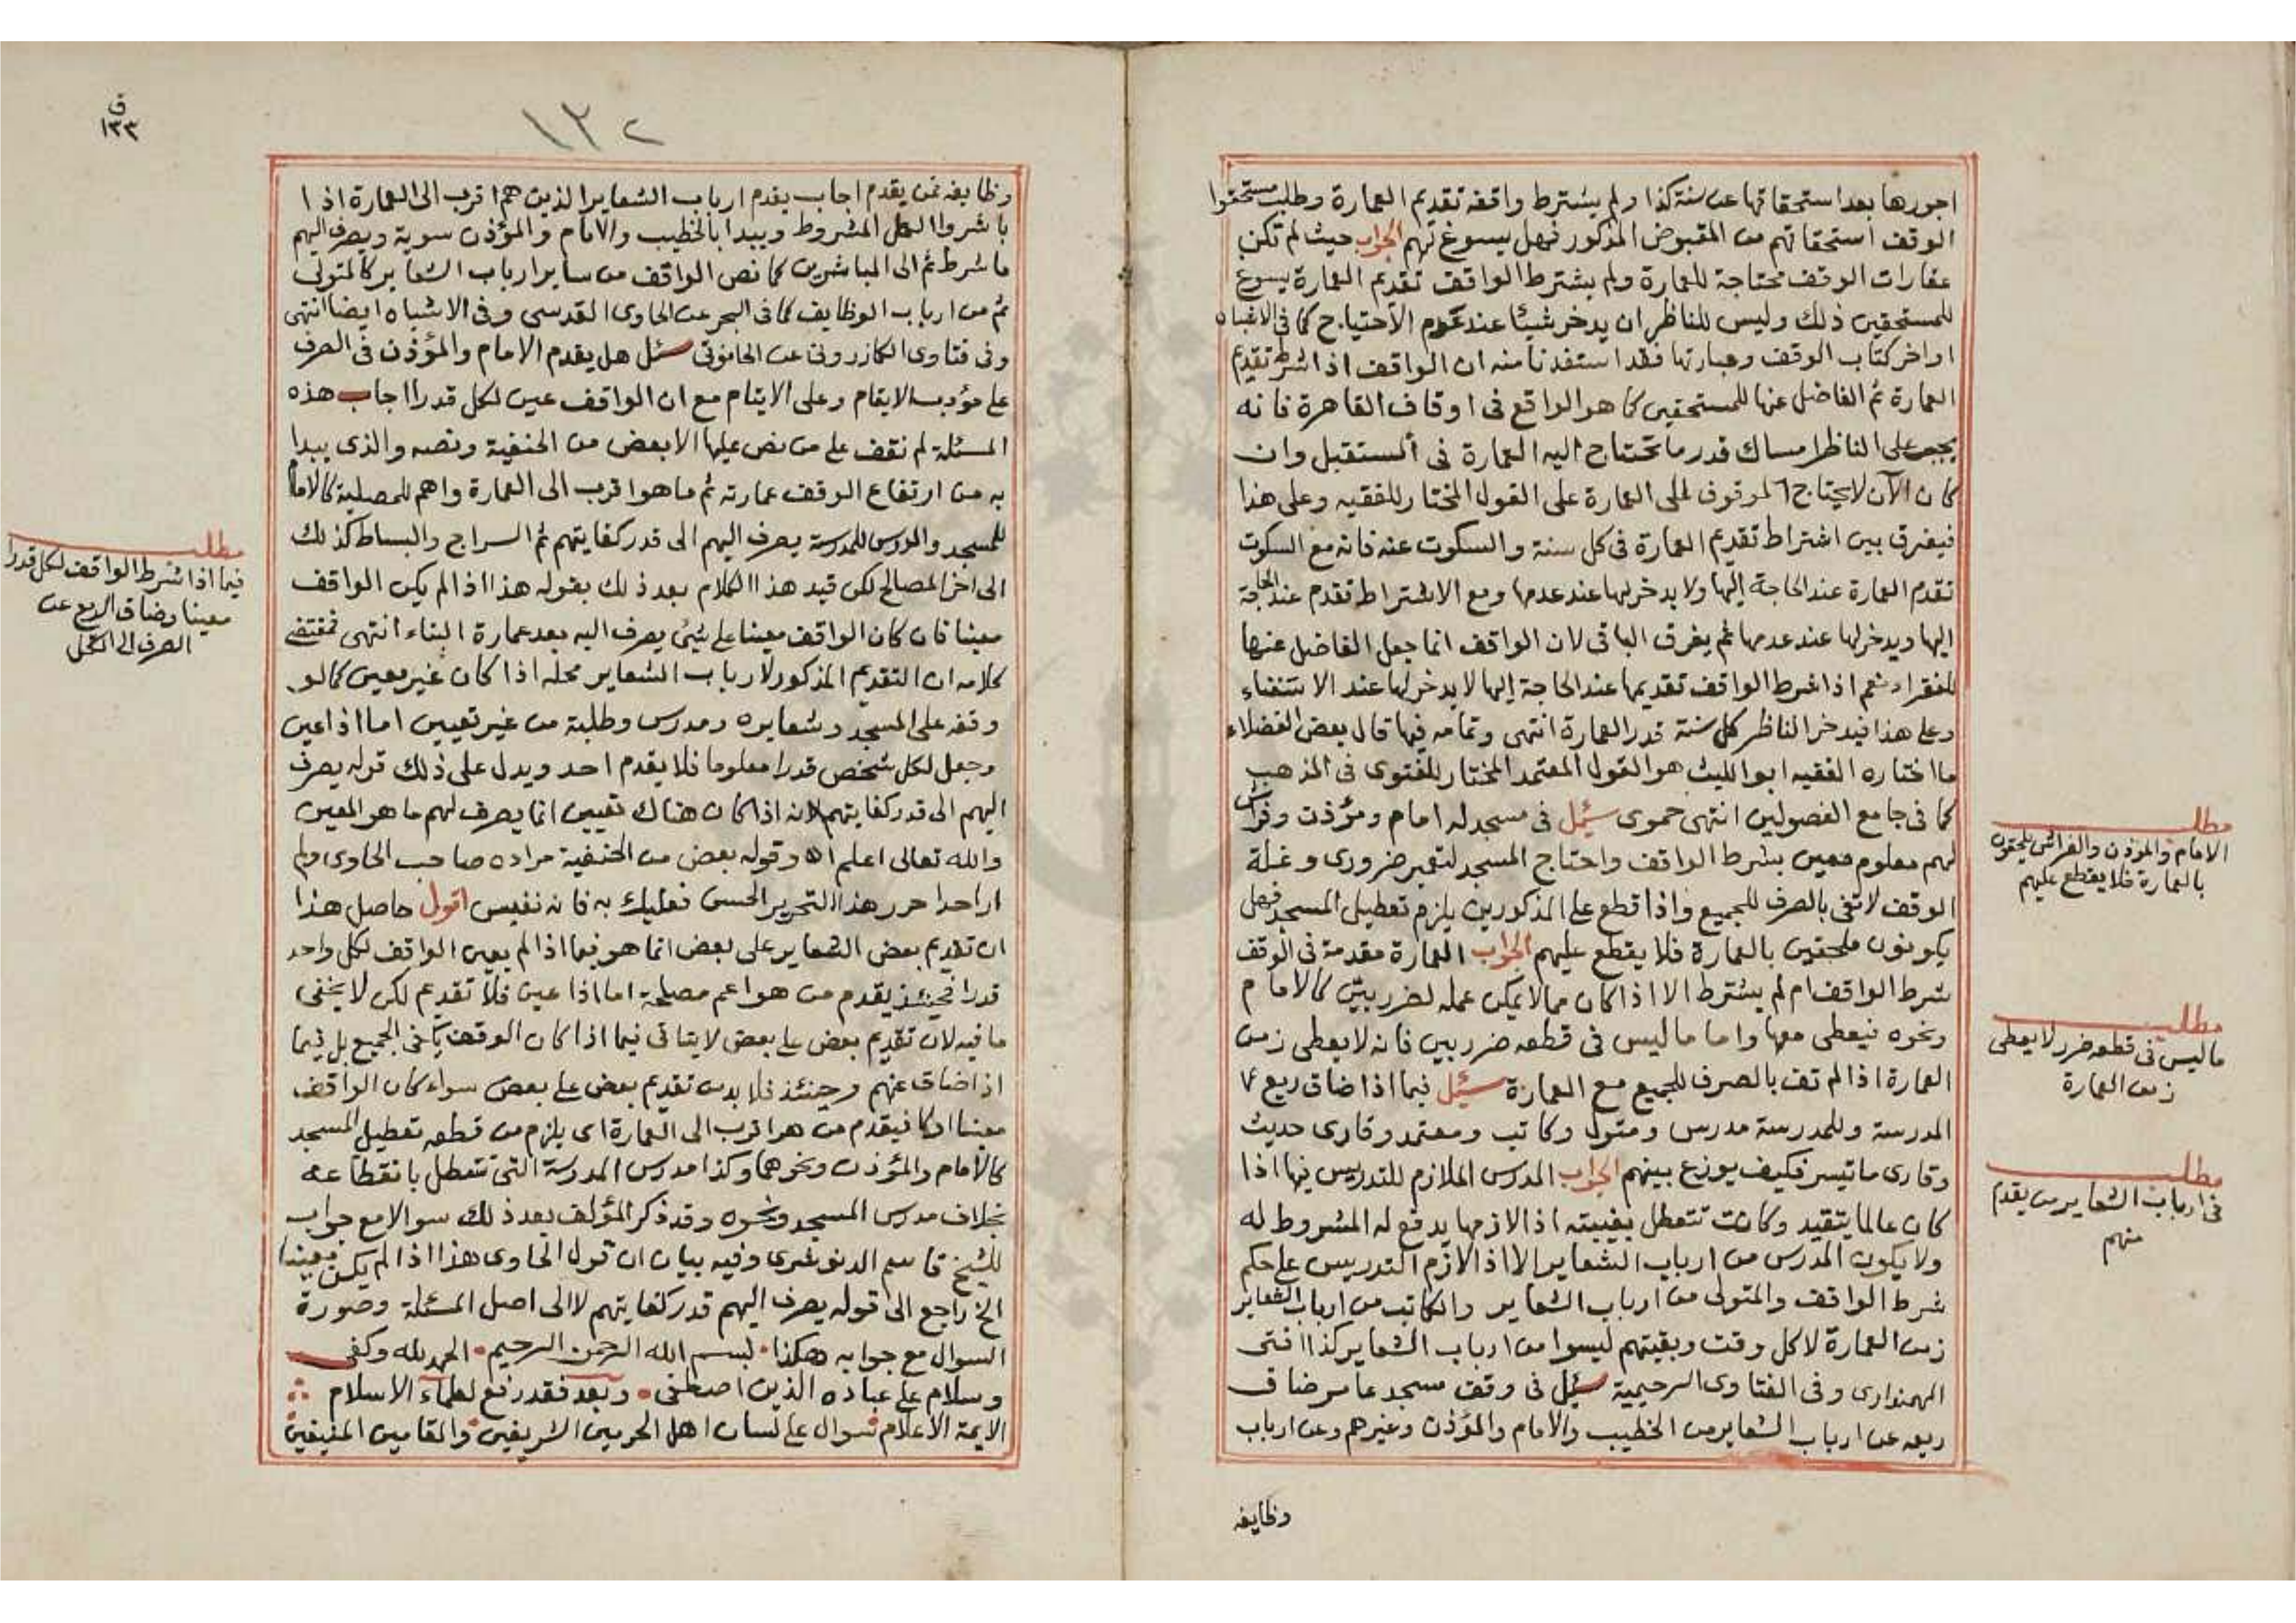 اجورها بعد استحقاقها عن سنة كذا ولم يشترط واقفه تقديم العمارة وطلب مستحقوا
الوقف استحقاقهم من المقبوض المذكور فهل يسوغ لهم الجواب حيث لم تكن
عقارات الوقف محتاجة للعمارة ولم يشترط الواقف تقديم العمارة يسوغ
للمستحقين ذلك وليس للناظر ان يدخر شيئا عند عدم الاحتياج كما في الاشباه
اواخر كتاب الوقف وعبارتها فقد استفدنا منه ان الواقف اذا شرط تقديم
العمارة ثم الفاضل عنها للمستحقين كما هو الواقع في اوقاف القاهرة فانه
يجب على الناظر امساك قدر ما تحتاج اليه العمارة في المستقبل وان
كان الآن لا يحتاج الموقوف الى العمارة على القول المختار للفقيه وعلى هذا
فيفرق بين اشتراط تقديم العمارة في كل سنة والسكوت عنه فانه مع السكوت
تقدم العمارة عند الحاجة اليها ولا يدخر لها عند عدمها ومع الاشتراط تقدم عند الحاجة
اليها ويدخر لها عند عدمها ثم يفرق الباقي لان الواقف انما جعل الفاضل عنها
للفقراء نعم اذا شرط الواقف تقديمها عند الحاجة اليها لا يدخر لها عند الاستغناء
وعلى هذا فيدخر الناظر كل سنة قدر العمارة انتهى وتمامه فيها قال بعض الفضلاء
ما اختاره الفقيه ابو الليث هو القول المعتمد المختار للفتوى في المذهب
كما في جامع الفصولين انتهى حموى سئل في مسجد له امام ومؤذن وفراش
لهم معلوم معين بشرط الواقف واحتاج المسجد لتعمير ضروري وغلة
الوقف لا تفي بالصرف للجميع واذا قطع على المذكورين يلزم تعطيل المسجد فهل
يكونون ملحقين بالعمارة فلا يقطع عليهم الجواب العمارة مقدمة في الوقف
شرط الواقف ام لم يشترط الا اذا كان ممالا يمكن عمله لضرر بيّن كالامام
ونحوه فيعطى معها واما ما ليس في قطعه ضرر بين فانه لا يعطى زمن
العمارة اذا لم تف بالصرف للجميع مع العمارة سئل فيما اذا ضاق ريع
المدرسة وللمدرسة مدرس ومتول وكاتب ومعتمد وقارى حديث
وقارى ما تيسر فكيف يوزع بينهم الجواب المدرس الملازم للتدريس فيها اذا
كان عالما يتقيد وكانت تتعطل بغيبته اذ الازمها يدفع له المشروط له
ولا يكون المدرس من ارباب الشعاير الا اذا لازم التدريس على حكم
شرط الواقف والمتولى من ارباب الشعاير والكاتب من ارباب الشعاير
زمن العمارة لا كل وقت وبقيتهم ليسوا من ارباب الشعاير كذا افتى
المهمنداري وفي الفتاوى الرحيمية سئل في وقف مسجد عامر ضاق
ريعه عن ارباب الشعاير من الخطيب والامام والمؤذن وغيرهم وعن ارباب
وظايفه
مطلب
الامام والمؤذن والفراش يلحقون
بالعمارة فلا يقطع عليهم
مطلب
ما ليس في قطعه ضرر لا يعطى
زمن العمارة
مطلب
في ارباب الشعاير من يقدم
منهم
ق
١٣٣
١٣٢
وظايفه فمن يقدم اجاب يقدم ارباب الشعاير الذين هم اقرب الى العمارة اذا
باشروا العمل المشروط ويبدا بالخطيب والامام والمؤذن سوية ويصرف اليهم
ما شرط ثم الى المباشرين كما نص الواقف من ساير ارباب الشعاير كالمتولى
ثم من ارباب الوظايف كما في البحر عن الحاوى القدسي وفي الاشباه ايضا انتهى
وفي فتاوى الكازروني عن الحانوتي سئل هل يقدم الامام والمؤذن في الصرف
على مؤدب الايتام وعلى الايتام مع ان الواقف عين لكل قدرا اجاب هذه
المسئلة لم نقف على من نص عليها الا بعض من الحنفية ونصه والذي يبدا
به من ارتفاع الوقف عمارته ثم ما هو اقرب الى العمارة واهم للمصلية كالامام
للمسجد والمدرس للمدرسة يصرف اليهم الى قدر كفايتهم ثم السراج والبساط كذلك
الى اخر المصالح لكن قيد هذا الكلام بعد ذلك بقوله هذا اذا لم يكن الواقف
معينا فان كان الواقف معينا على شئ يصرف اليه بعد عمارة البناء انتهى فمقتضى
كلامه ان التقديم المذكور لارباب الشعاير محله اذا كان غير معين كما لو
وقفه على المسجد وشعايره ومدرس وطلبة من غير تعيين اما اذا عين
وجعل لكل شخص قدرا معلوما فلا يقدم احد ويدل على ذلك قوله يصرف
اليهم الى قدر كفايتهم لانه اذا كان هناك تعيين انما يصرف لهم ما هو المعين
والله تعالى اعلم اه وقوله بعض من الحنفية مراده صاحب الحاوى ولم
ار احدا حرر هذا التحرير الحسن فعليك به فانه نفيس اقول حاصل هذا
ان تقديم بعض الشعاير على بعض انما هو فيما اذا لم يعين الواقف لكل واحد
قدرا فحينئذ يقدم من هو اعم مصلحة اما اذا عين فلا تقديم لكن لا يخفى
ما فيه لان تقديم بعض على بعض لا يتاتى فيما اذا كان الوقف يكفى الجميع بل فيما
اذا ضاق عنهم وحينئذ فلا بد من تقديم بعض على بعض سواء كان الواقف
معينا او لا فيقدم من هو اقرب الى العمارة اى يلزم من قطعه تعطيل المسجد
كالامام والمؤذن ونحوهما وكذا مدرس المدرسة التي تتعطل بانقطاعه
بخلاف مدرس المسجد ونحوه وقد ذكر المؤلف بعد ذلك سوالا مع جواب
للشيخ قاسم الدنوشرى وفيه بيان ان قول الحاوى هذا اذا لم يكن معينا
الخ راجع الى قوله يصرف اليهم قدر كفايتهم لا الى اصل المسئلة وصورة
السوال مع جوابه هكذا بسم الله الرحمن الرحيم الحمد لله وكفى
وسلام على عباده الذين اصطفى وبعد فقد رفع لعلماء الاسلام
الايمة الاعلام سوال على لسان اهل الحرمين الشريفين والمقامين المنيفين
مطلب
فيما اذا شرط الواقف لكل قدرا
معينا وضاق الريع عن
الصرف الى الكل